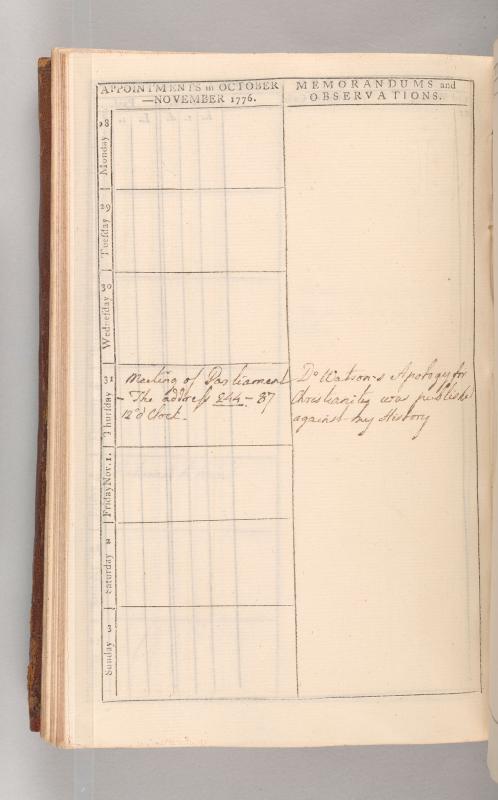 APPOINTMENTS in OCTOBER
—NOVEMBER 1776.
MEMORANDUMS and
OBSERVATIONS.
Monday 28
Tuesday 29
Wednesday 30
Thursday 31
Meeting of Parliament
- The address 244 - 87
12 o'Clock.
Dr Watson's Apology for
Christianity was publishd
against my History
Friday Nov. 1.
Saturday 2
Sunday 3